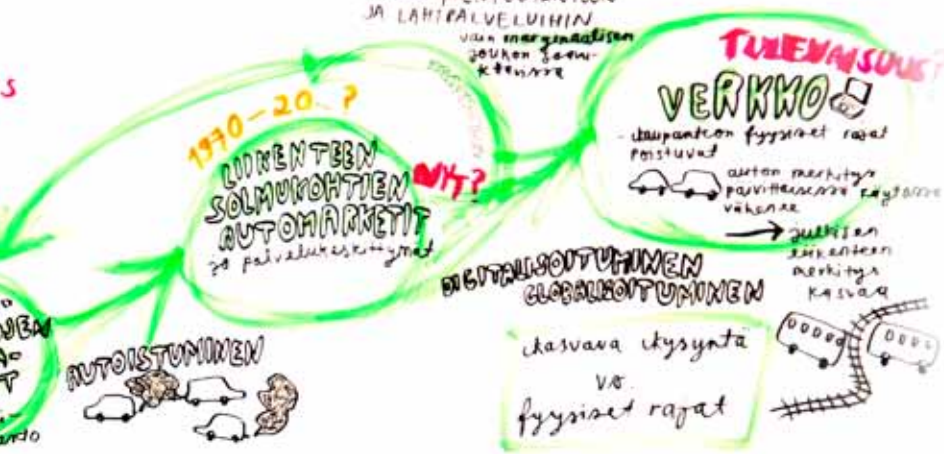 JA LÄHIPALVELUIHIN
vain marginaalisen
joukon saavu-
tettavissa
S
1970–20..?
LIIKENTEEN
SOLMUKOHTIEN
AUTOMARKETIT
ja palvelukeskittymät
NYT?
TULEVAISUUS?
VERKKO
- kaupanteon fyysiset rajat
poistuvat
auton merkitys
päivittäisessä käytössä
vähenee
julkisen
liikenteen
merkitys
kasvaa
DIGITALISOITUMINEN
GLOBALISOITUMINEN
AUTOISTUMINEN
kasvava kysyntä
vs.
fyysiset rajat